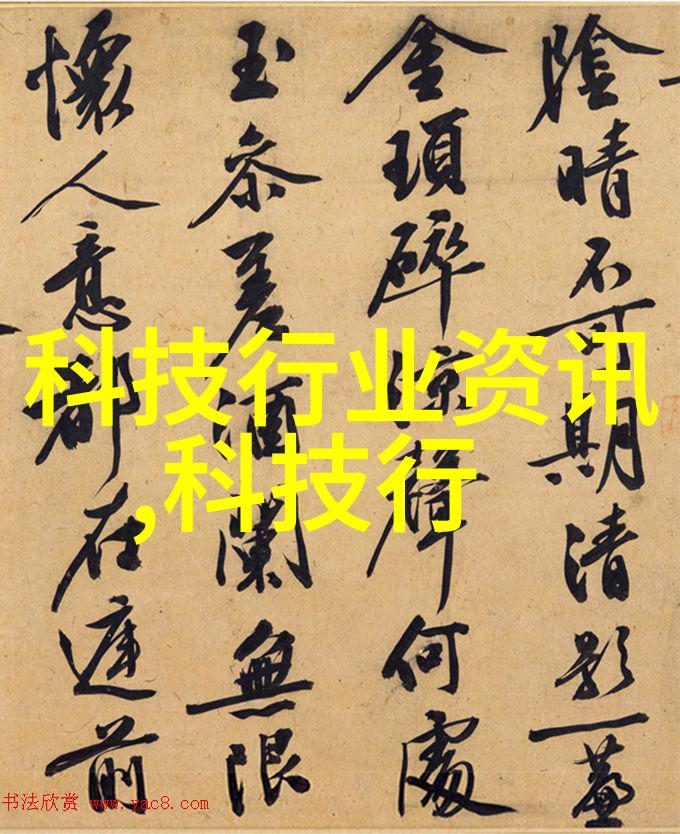 陰晴不可期清影一簾
金瑣碎涼聲何處
玉參差酒闌無限
懷人意都在庭前
科技行业资讯
,科技行
书法欣赏 www.yac8.com